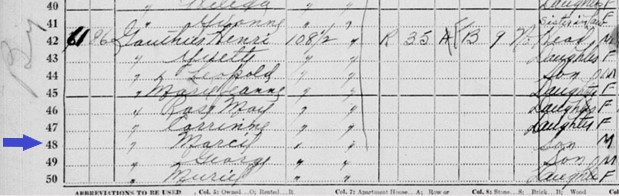 40 " Daughter F
41 " Yvonne " " Sister in law F
42 61 Gauthier Henri 108½ " R 35 A B 9 Head M
43 " " " Daughter F
44 " Leopold " " Son M
45 " Mary Jeanne " " Daughter F
46 " Rose May " " Daughter F
47 " Corrinne " " Daughter F
48 " Marcil " " Son M
49 " George " " Son M
50 " Muriel " " Daughter F
ABBREVIATIONS TO BE USED Col. 5: Owned...O; Rented...R Col. 7: Apartment House...A; Row or Col. 8: Stone...S; Brick...B; Wood